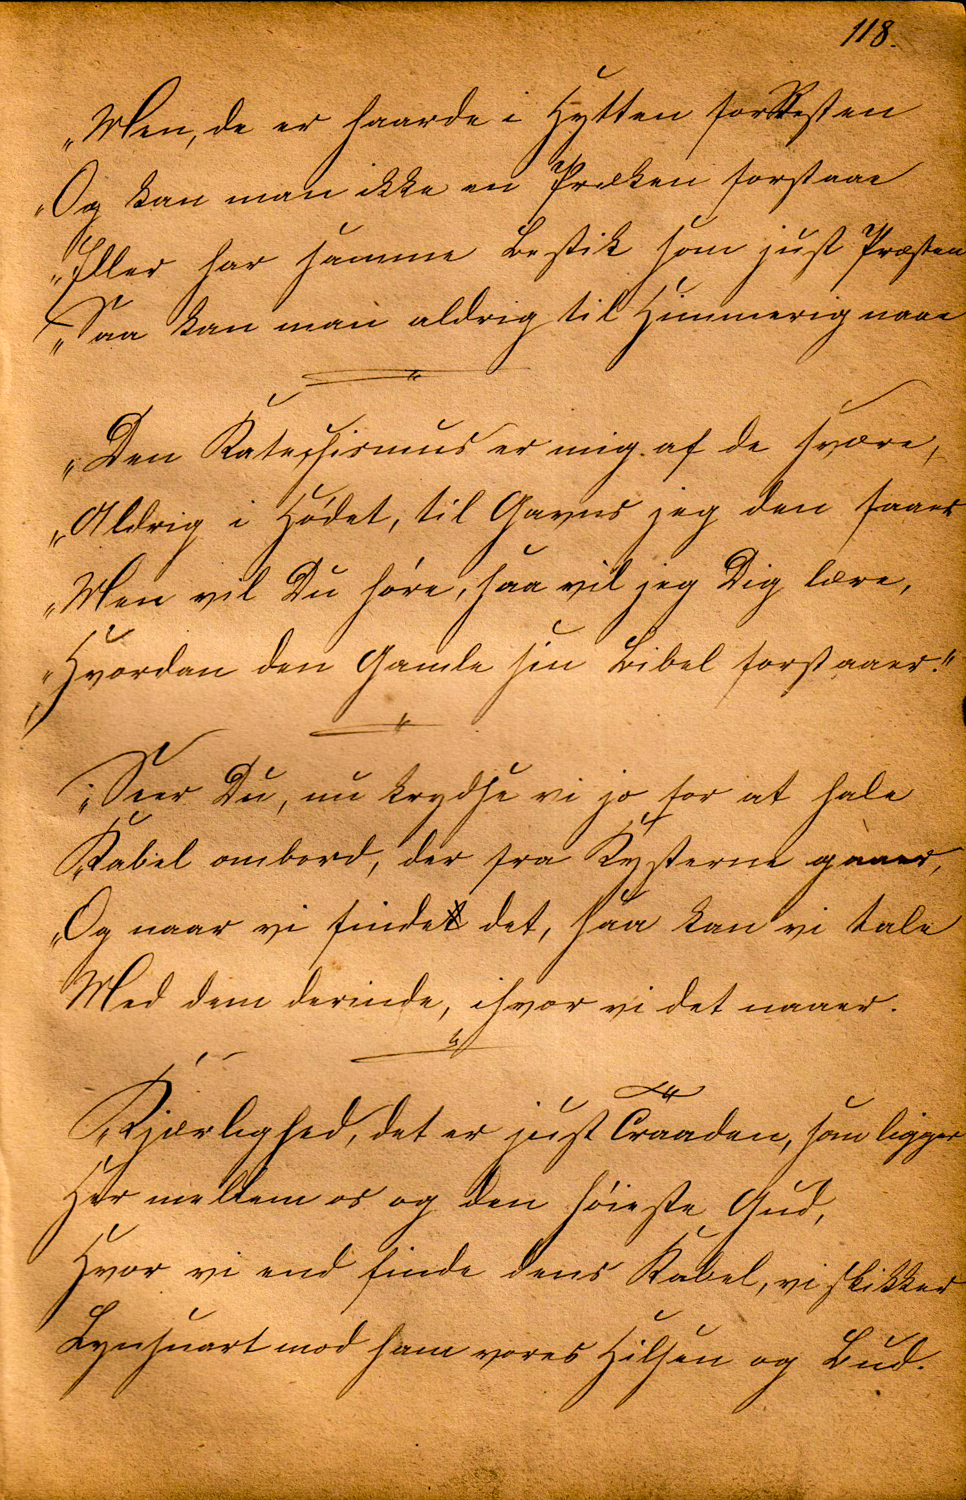 118.
„Men, de er haarde i Hytten forresten
„Og kan man ikke en Præken forstaae
„Eller har samme Bestik som just Præsten
„Saa kan man aldrig til Himmerig naae
„Den Katechismus er mig af de svære,
„Aldrig i Hødet, til Gavns jeg den faaer
„Men vil Du høre, saa vil jeg Dig lære,
„Hvordan den Gamle sin Bibel forstaaer."
„Seer Du, nu krydse vi jo for at hale
Kabel ombord, der fra Kysterne gaaer,
„Og naar vi finde det, saa kan vi tale
Med dem derinde, ihvor vi det naaer.
Kjærlighed, det er just Traaden, som ligger
Her mellem os og den høieste Gud,
Hvor vi end finde dens Kabel, vi skikker
Lynsnart mod ham vores Hilsen og Bud.